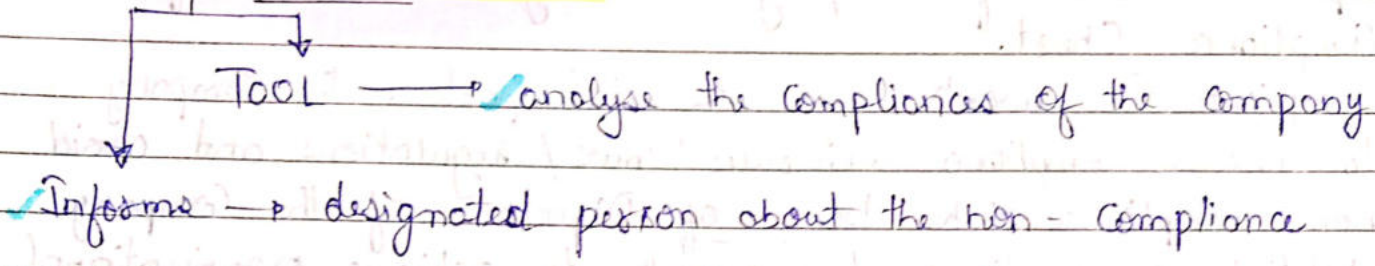 TOOL → analyse the compliances of the company
Informs → designated person about the non - compliance